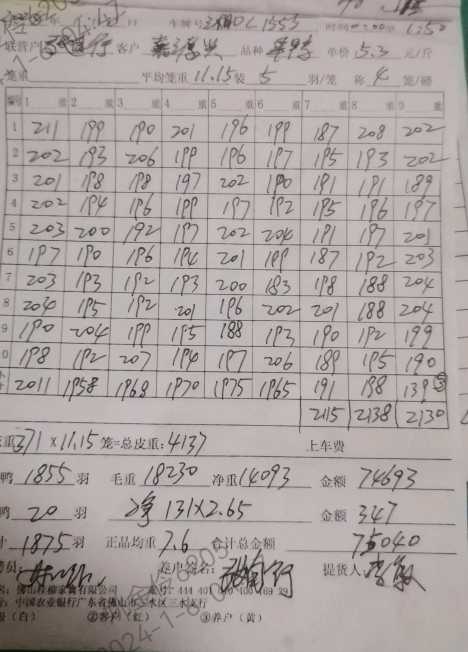 联营户 客户 品种 单价 5.3 元/斤
笼重 平均笼重 11.15 装 5 羽/笼 称 4 笼/磅
1 重 2 重 3 重 4 重 5 重 6 重 7 重 8 重 9 重
1 211 199 190 201 196 199 187 208 202
2 202 193 206 199 196 197 195 193 202
3 201 198 198 197 202 190 191 191 189
4 202 194 196 199 197 192 195 196 197
5 203 200 192 197 202 204 191 197 201
6 197 190 196 194 201 199 187 192 203
7 203 193 192 193 200 183 198 188 204
8 204 195 192 201 196 202 201 188 204
9 190 204 199 195 188 193 190 192 199
0 198 192 207 194 197 206 189 195 190
2011 1958 1968 1970 1975 1965 191 198 139
2115 2138 2130
371 × 11.15 笼=总皮重: 4137 上车费
鸭 1855 羽 毛重 18230 净重 14093 金额 74693
鸭 20 羽 净 131×2.65 金额 347
1875 羽 正品均重 7.6 合计总金额 75040
养户签名: 提货人:
中国农业银行广东省佛山市三水区三水支行
(白) ②客户(红) ③养户(黄)